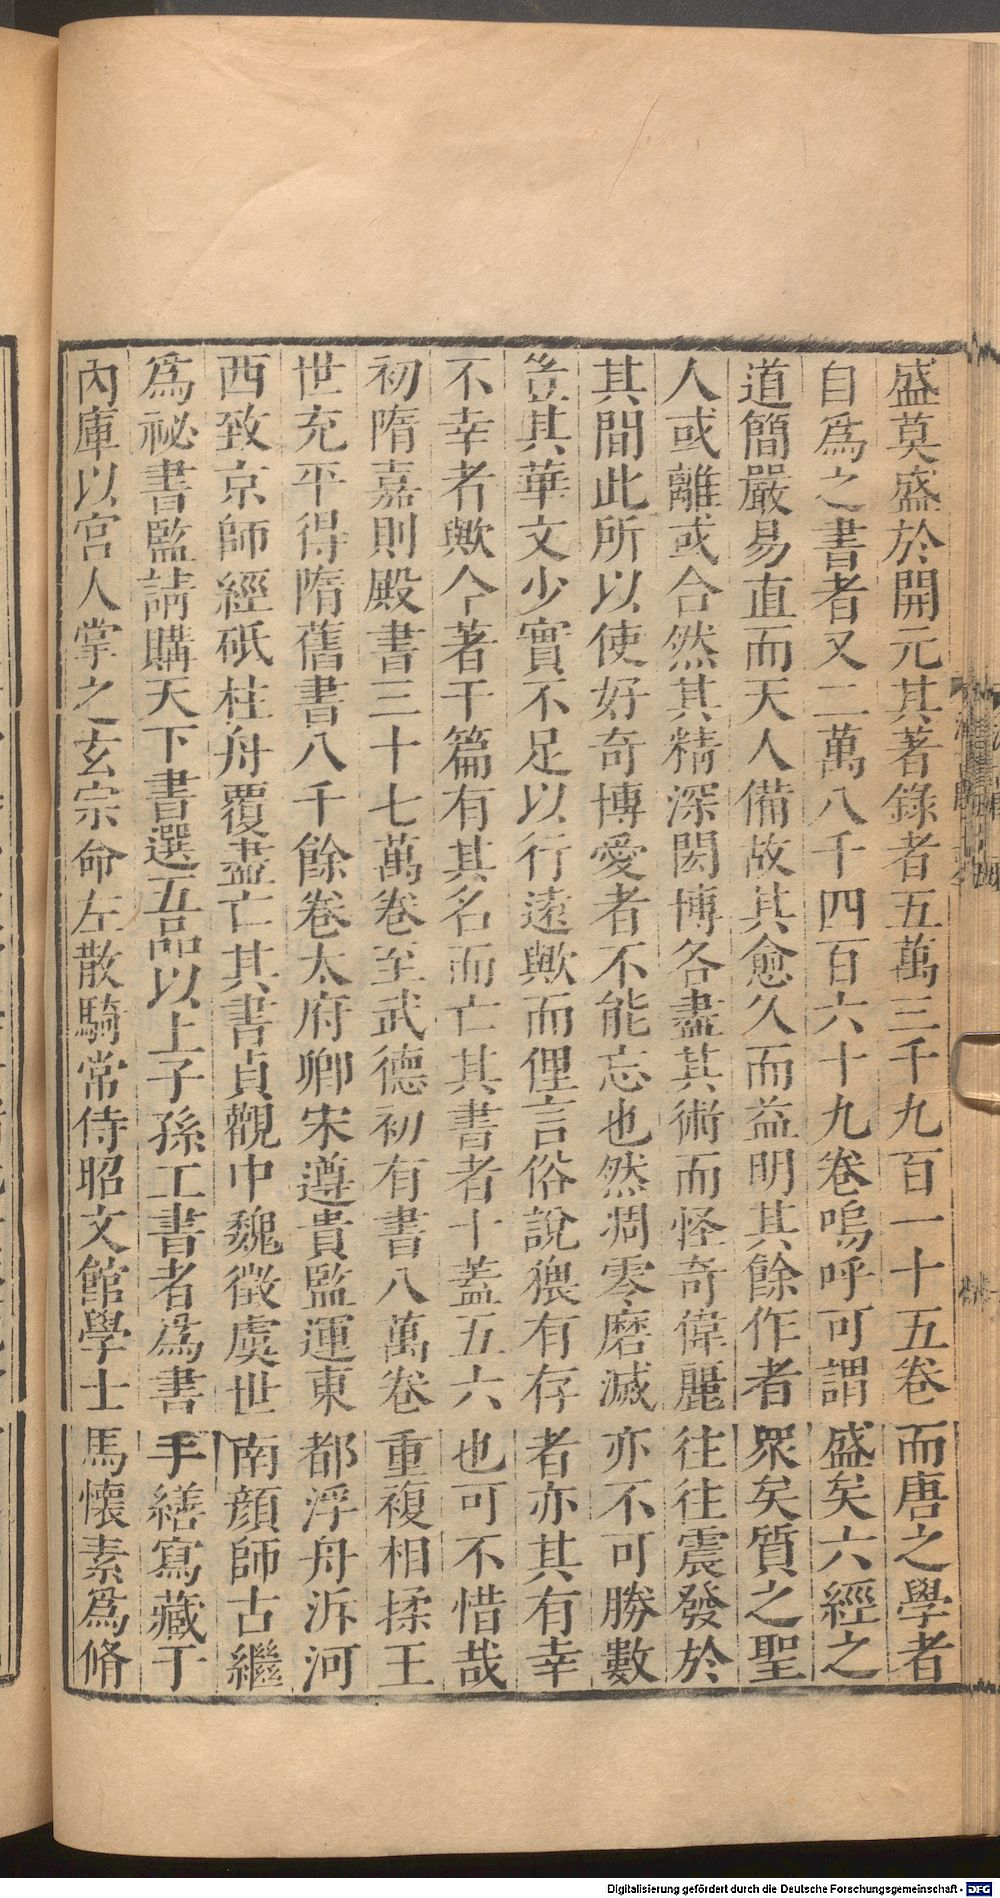 盛莫盛於開元其著錄者五萬三千九百一十五卷而唐之學者
自爲之書者又二萬八千四百六十九卷嗚呼可謂盛矣六經之
道簡嚴易直而天人備故其愈久而益明其餘作者衆矣質之聖
人或離或合然其精深閎博各盡其術而怪奇偉麗往往震發於
其間此所以使好奇博愛者不能忘也然凋零磨滅亦不可勝數
豈其華文少實不足以行遠歟而俚言俗說猥有存者亦其有幸
不幸者歟今著于篇有其名而亡其書者十蓋五六也可不惜哉
初隋嘉則殿書三十七萬卷至武德初有書八萬卷重複相揉王
世充平得隋舊書八千餘卷太府卿宋遵貴監運東都浮舟泝河
西致京師經砥柱舟覆盡亡其書貞觀中魏徵虞世南顏師古繼
爲祕書監請購天下書選五品以上子孫工書者爲書手繕寫藏于
內庫以宮人掌之玄宗命左散騎常侍昭文館學士馬懷素爲脩
Digitalisierung gefördert durch die Deutsche Forschungsgemeinschaft - DFG